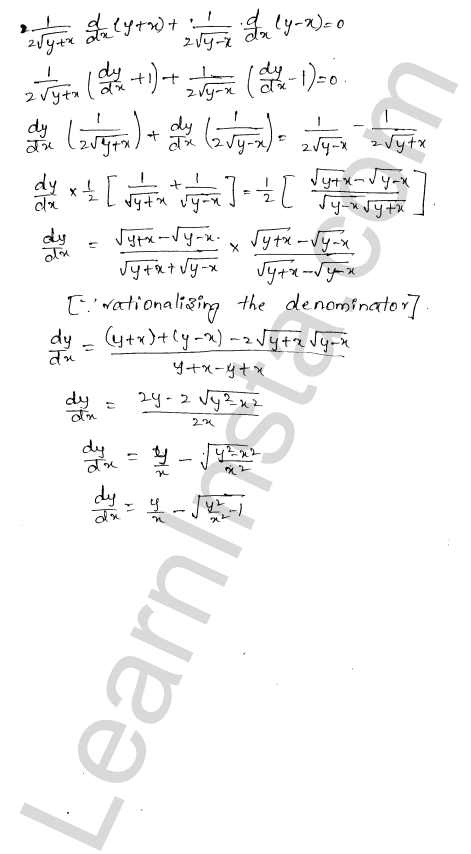 2 1/(2√y+x) d/dx (y+x) + 1/(2√y-x) · d/dx (y-x) = 0
1/(2√y+x) (dy/dx + 1) + 1/(2√y-x) (dy/dx - 1) = 0.
dy/dx (1/(2√y+x)) + dy/dx (1/(2√y-x)) = 1/(2√y-x) - 1/(2√y+x)
dy/dx × 1/2 [1/√y+x + 1/√y-x] = 1/2 [(√y+x - √y-x)/(√y-x √y+x)].
dy/dx = (√y+x - √y-x)/(√y+x + √y-x) × (√y+x - √y-x)/(√y+x - √y-x)
[∵ rationalizing the denominator].
dy/dx = ((y+x)+(y-x)-2√y+x √y-x)/(y+x-y+x)
dy/dx = (2y-2√y²-x²)/2x
dy/dx = y/x - √((y²-x²)/x²)
dy/dx = y/x - √(y²/x² - 1)
LearnInsta.com